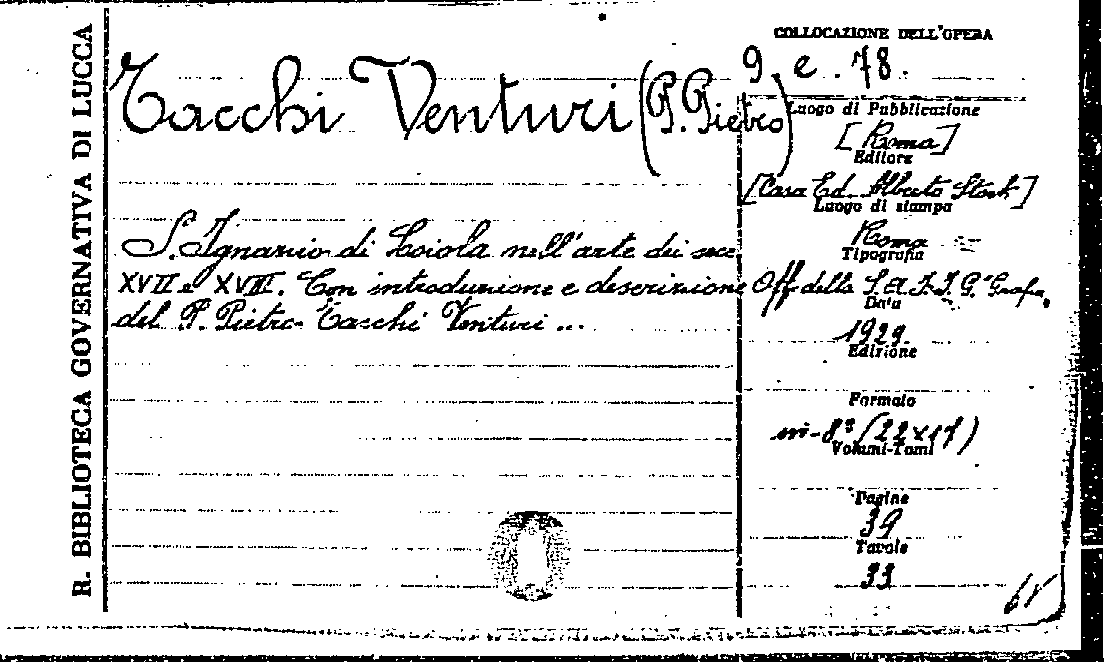 R. BIBLIOTECA GOVERNATIVA DI LUCCA
Tacchi Venturi (P. Pietro)
S. Ignazio di Loiola nell'arte dei secc.
XVII e XVIII. Con introduzione e descrizione
del P. Pietro Tacchi Venturi ...
COLLOCAZIONE DELL'OPERA
9. e. 78.
Luogo di Pubblicazione
[Roma]
Editore
[Casa Ed. Alberto Stock]
Luogo di stampa
Roma
Tipografia
Off. della S.A.I.I.G. Grafia,
Data
1929.
Edizione
Formato
in-8° (22x17)
Volumi-Tomi
Pagine
39
Tavole
33